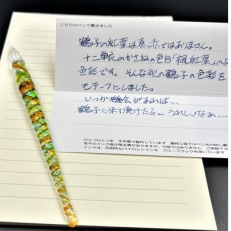 こちらのペンで書きました
鶴子の紅葉は真赤ではありません。
十二単衣のかさねの色目「楓紅葉」の
色彩です。そんな秋の鶴子の色彩を
モチーフにしました。
いつか機会があれば…
鶴子に来て頂けたら… うれしいなぁ…